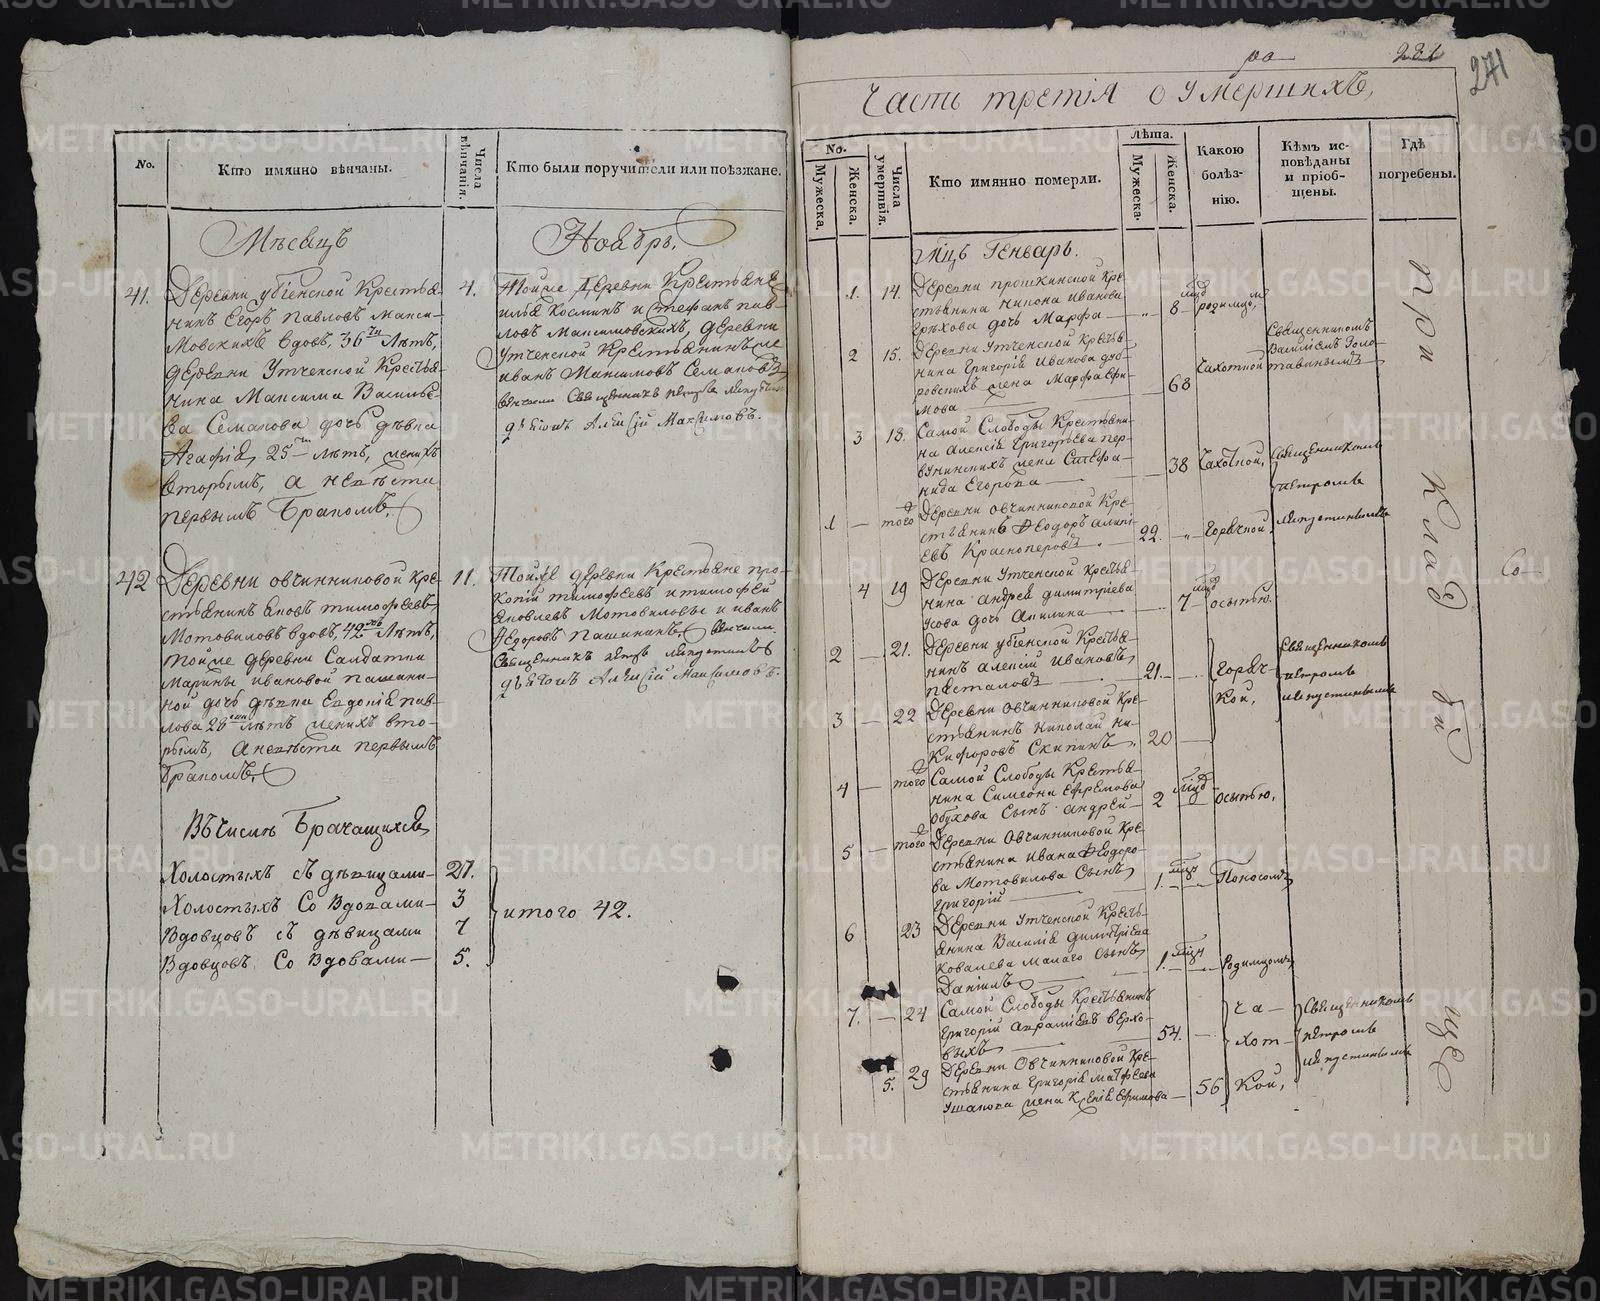 No.
Кто имянно вѣнчаны.
Числа вѣнчанія.
Кто были поручители или поѣзжане.
Мѣсяцъ
Ноябрь.
41.
Деревни убіенской Крестья-
нинъ Егоръ Павловъ Макси-
мовскихъ вдовъ, 36 ти Лѣтъ,
деревни Утченской Крестья-
нина Максима Василье-
ва Семакова дочь дѣвка
Агафія, 25 лѣтъ, женихъ
вторымъ, а невѣста
первымъ Бракомъ.
4.
Тойже Деревни Крестьяне
илья Косминъ и Стефанъ пав-
ловъ Максимовскихъ, деревни
Утченской Крестьянинъ же
иванъ Максимовъ Семаковъ
Вѣнчали Священникъ петръ
дьячокъ Алексій Максимовъ.
42
Деревни овчинниковой Кре-
стьянинъ яковъ тимофеевъ
Мотовиловъ вдовъ, 42 Лѣтъ,
тойже деревни Салдатки
Марины ивановой пашини-
ной дочь дѣвка Евдокія пав-
лова 26 лѣтъ женихъ вто-
рымъ, а невѣста первымъ
бракомъ.
11.
Тойже деревни Крестьяне про-
копій тимофеевъ и тимофей
яковлевъ Мотовиловы и иванъ
Федоровъ Пашининъ. Вѣнчали
Священникъ петръ
дьячокъ Алексій Максимовъ.
Въ числѣ Брачащихся
Холостыхъ съ дѣвицами — 27.
Холостыхъ Со Вдовами — 3
Вдовцовъ съ дѣвицами 7
Вдовцовъ Со Вдовами — 5.
итого 42.
271
Часть третія о умершихъ,
No.
Мужеска.
Женска.
Числа умертвія.
Кто имянно померли.
Лѣта.
Мужеска.
Женска.
Какою болѣз-
нію.
Кѣмъ ис-
повѣданы
и пріоб-
щены.
Гдѣ
погребены.
Мцъ Генварь.
1. 14.
Деревни прошкинской Кре-
стьянина никона иванова
дочь Марфа —
8 родимцомъ
2 15.
Деревни Утченской Крестья-
нина Григорія Иванова дуб-
ровскихъ жена Марфа Ефи-
мова
68
Чахоткой
Священникомъ
Василіемъ Золо-
тавинымъ
3 18.
Самой Слободы Крестьяни-
на Алексія Григорьева
жена Стефа-
нида Егорова —
38 Чахоткой,
Священникомъ
петромъ
1 — того
Деревни овчинниковой Кре-
стьянинъ Феодоръ
Красноперовъ
22. Горячкой
4 19
Деревни Утченской Крестья-
нина Андрея димитріева
Усова дочь Акилина —
7 осыпью.
2 — 21.
Деревни убіенской Крестья-
нинъ алексій Ивановъ
21.
Горяч-
кой,
Священникомъ
петромъ
3 — 22
Деревни Овчинниковой Кре-
стьянинъ Николай ни-
кифоровъ Скипинъ,
20
4 — того
Самой Слободы Крестья-
нина Симеона Ефремова
Обухова Сынъ Андрей —
2 осыпью,
5 — того
Деревни Овчинниковой Кре-
стьянина Ивана Феодоро-
ва Мотовилова Сынъ
григорій —
1. Поносомъ
6 23
Деревни Утченской Кресть-
янина Василія димитріева
Ковалева малаго Сынъ
Даніилъ —
1. Родимцомъ,
7. — 24
Самой Слободы Крестьянинъ
Григорій Авраміевъ Верхо-
выхъ —
54.
Ча-
хот-
кой,
Священникомъ
петромъ
5. 29
Деревни Овчинниковой Кре-
стьянина григорія матфеева
Ушакова жена Ксенія Ефимова —
56
При Кладбищѣ
Со-
METRIKI.GASO-URAL.RU